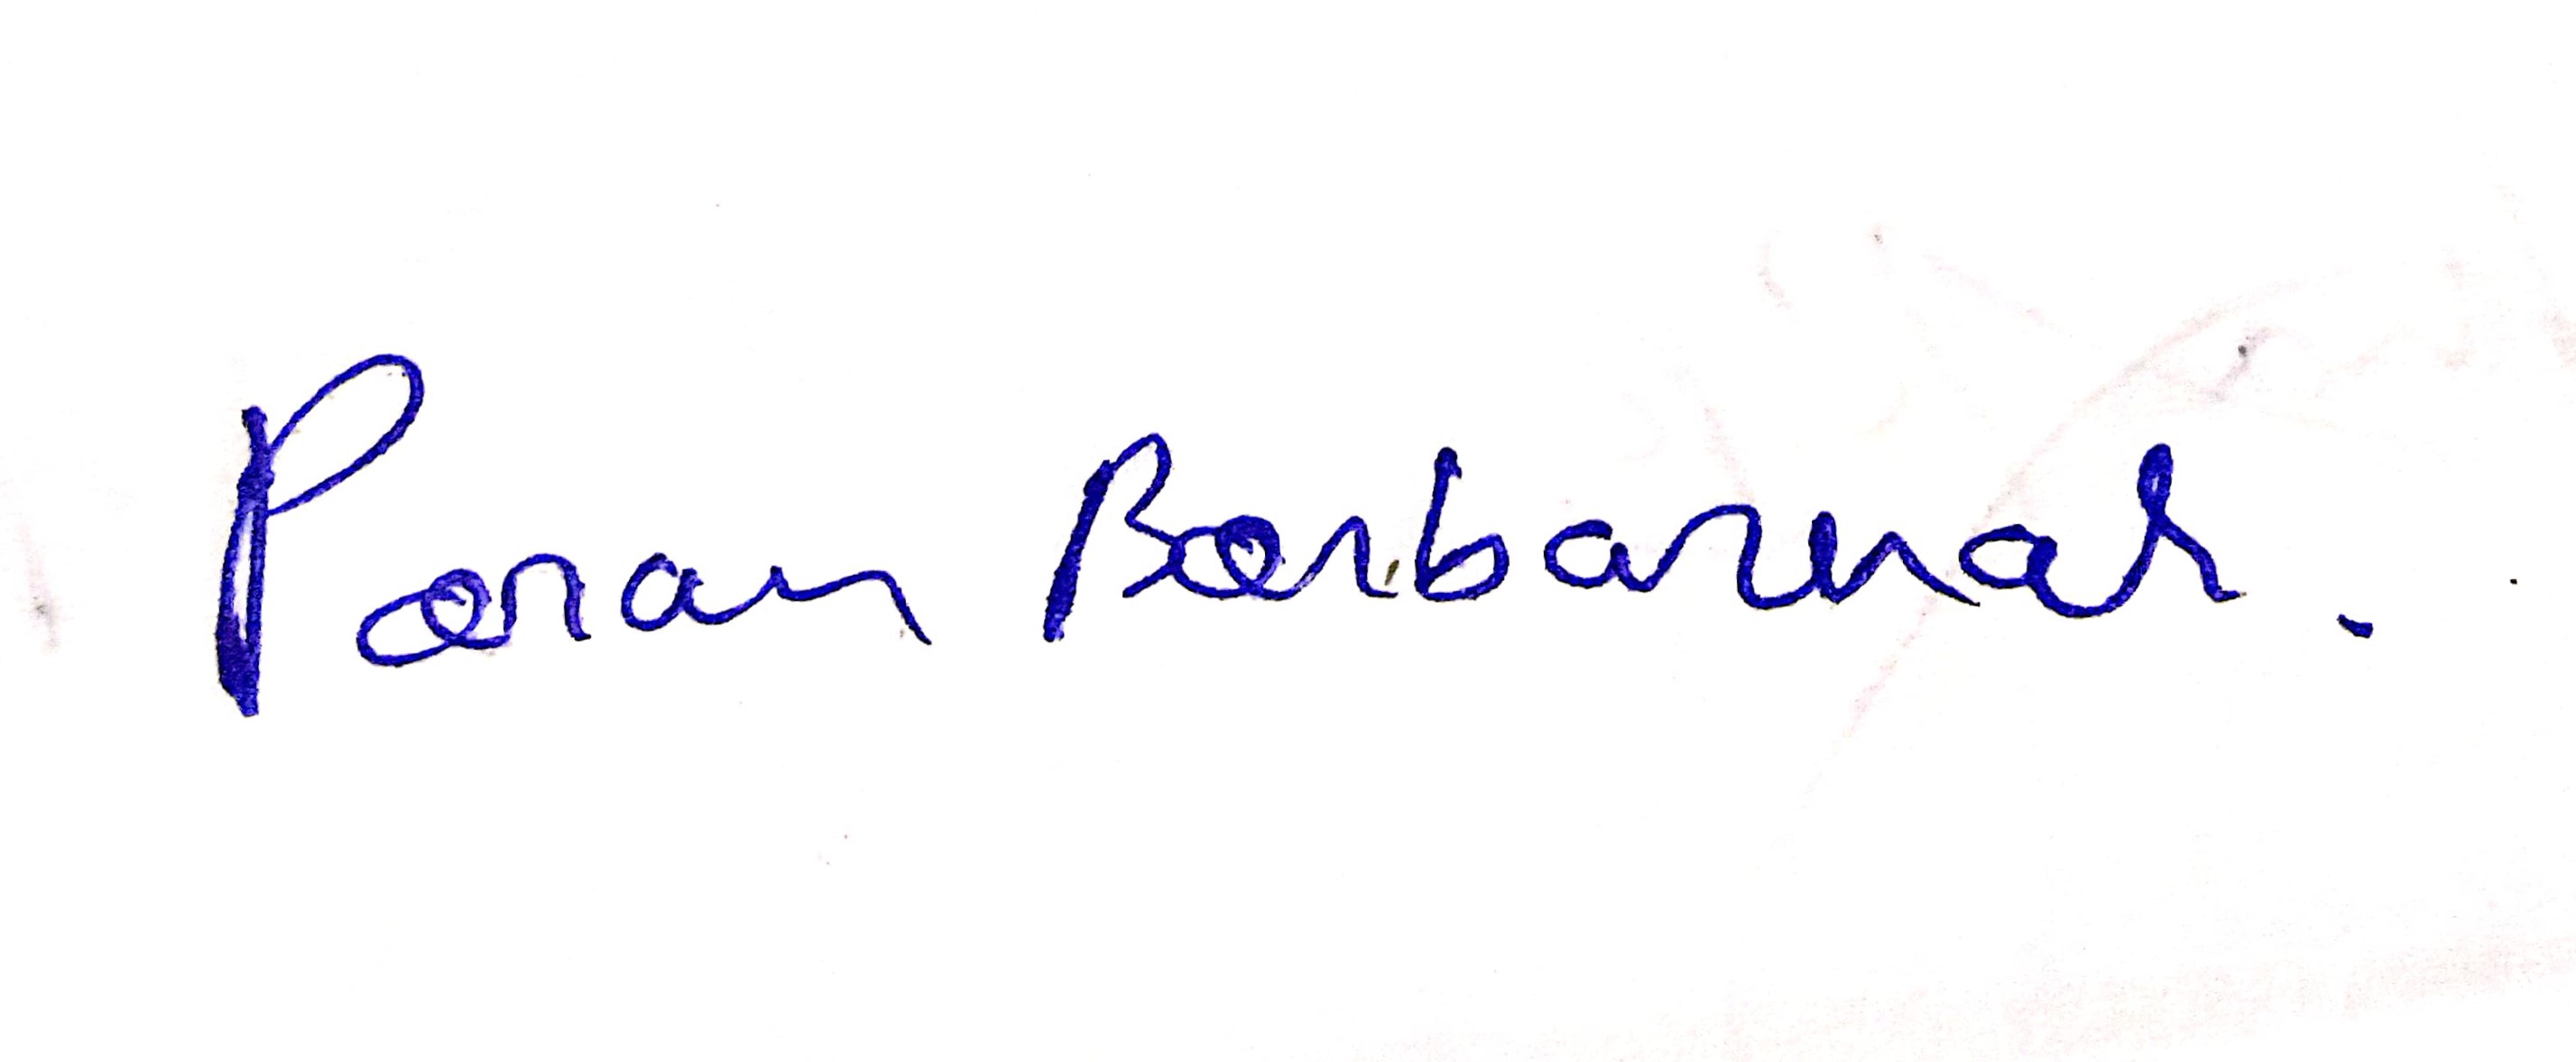 Poran Borbaruah.